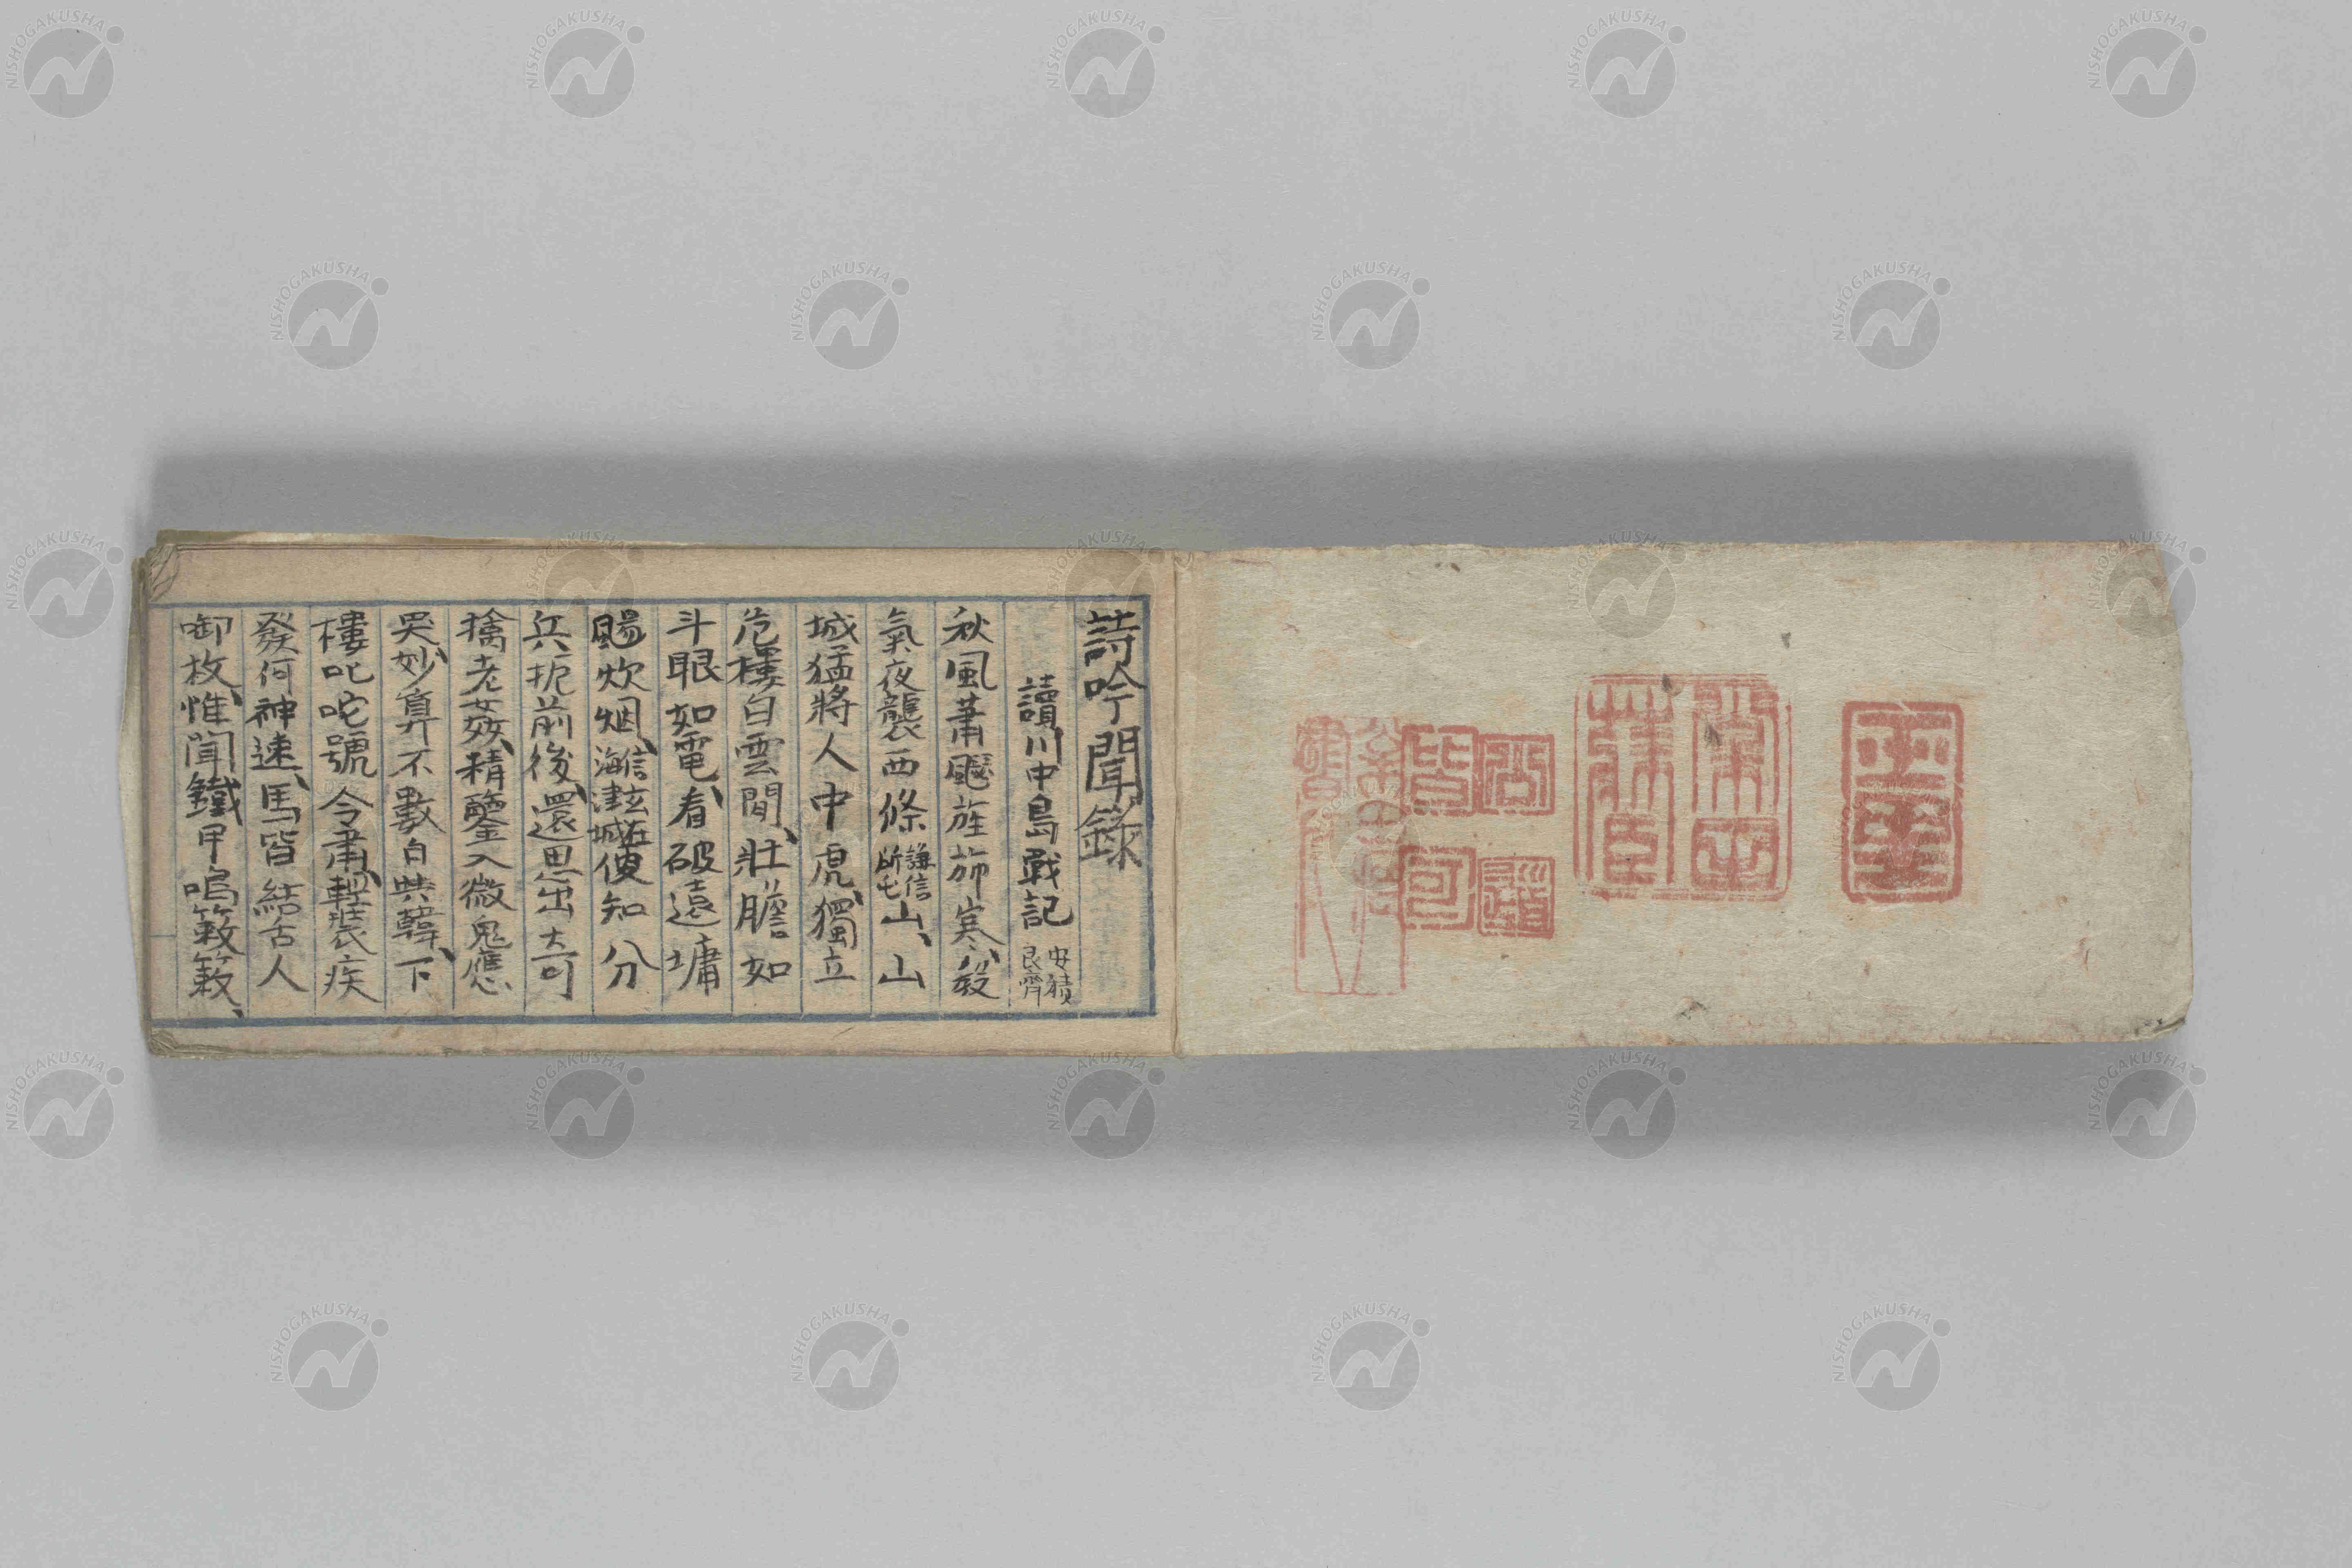 詩吟聞錄
讀川中島戰記 安積艮齋
秋風蕭颼旌斾寒、殺
氣夜襲西條 謙信所屯 山、山
城猛將人中虎、獨立
危樓白雲間、壯膽如
斗眼如電、看破遠墉
颺炊烟、 信在海津城 傁知分
兵扼前後、還思出奇
擒老姦、精鑒入微鬼應
哭、妙算不數白與韓、下
樓叱咤號令肅、輕裝疾
發何神速、馬皆結舌人
啣枚、惟聞鐵甲鳴簌簌、
NISHOGAKUSHA